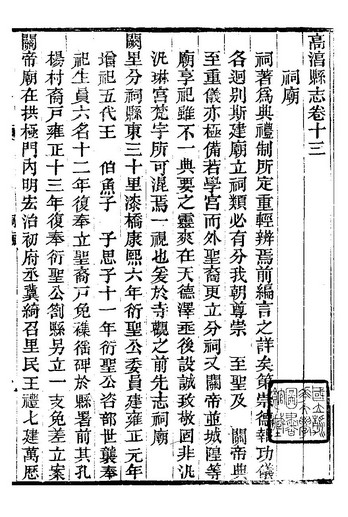 高淳縣志卷十三
祠廟
祠著為典禮制所定重輕辨焉前編言之詳矣第崇德報功儀
各迥别斯建廟立祠類必有分我朝尊崇 至聖及 關帝典
至重儀亦極備若學宮而外聖裔更立分祠又關帝並城隍等
廟享祀雖不一典要之靈爽在天德澤垂後設誠致敬固非汎
汎琳宮梵宇所可混焉一視也爰於寺觀之前先志祠廟
闕里分祠縣東三十里漆橋康熙六年衍聖公委員建雍正元年
增祀五代王 伯魚子 子思子十一年衍聖公咨部世襲奉
祀生員六名十二年復奉立聖裔户免襍徭碑於縣署前其孔
楊村裔戸雍正十三年復奉衍聖公劄縣另立一支免差立案
關帝廟在拱極門內明宏治初府丞冀綺召里民王禮七建萬厯